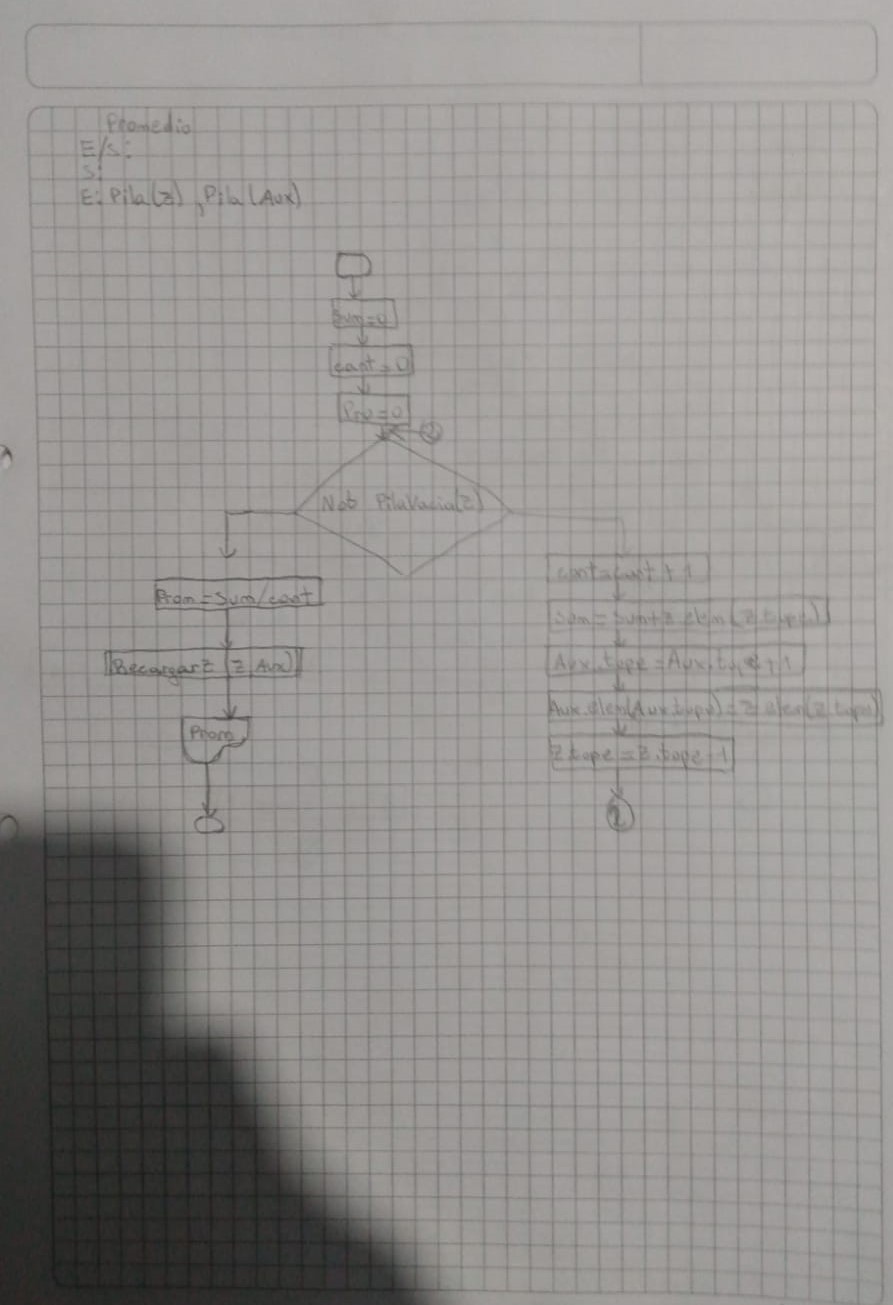 Promedio
E/S:
S:
E: Pila(z), Pila(Aux)
Sum=0
cant=0
Pro=0
2
Not PilaVacia(z)
Prom=Sum/cant
Recargar z (z, Aux)
Prom
cant=cant+1
Sum=Sum+z.elem(z.tope)
Aux.tope=Aux.tope+1
Aux.elem(Aux.tope)=z.elem(z.tope)
z.tope=z.tope-1
2